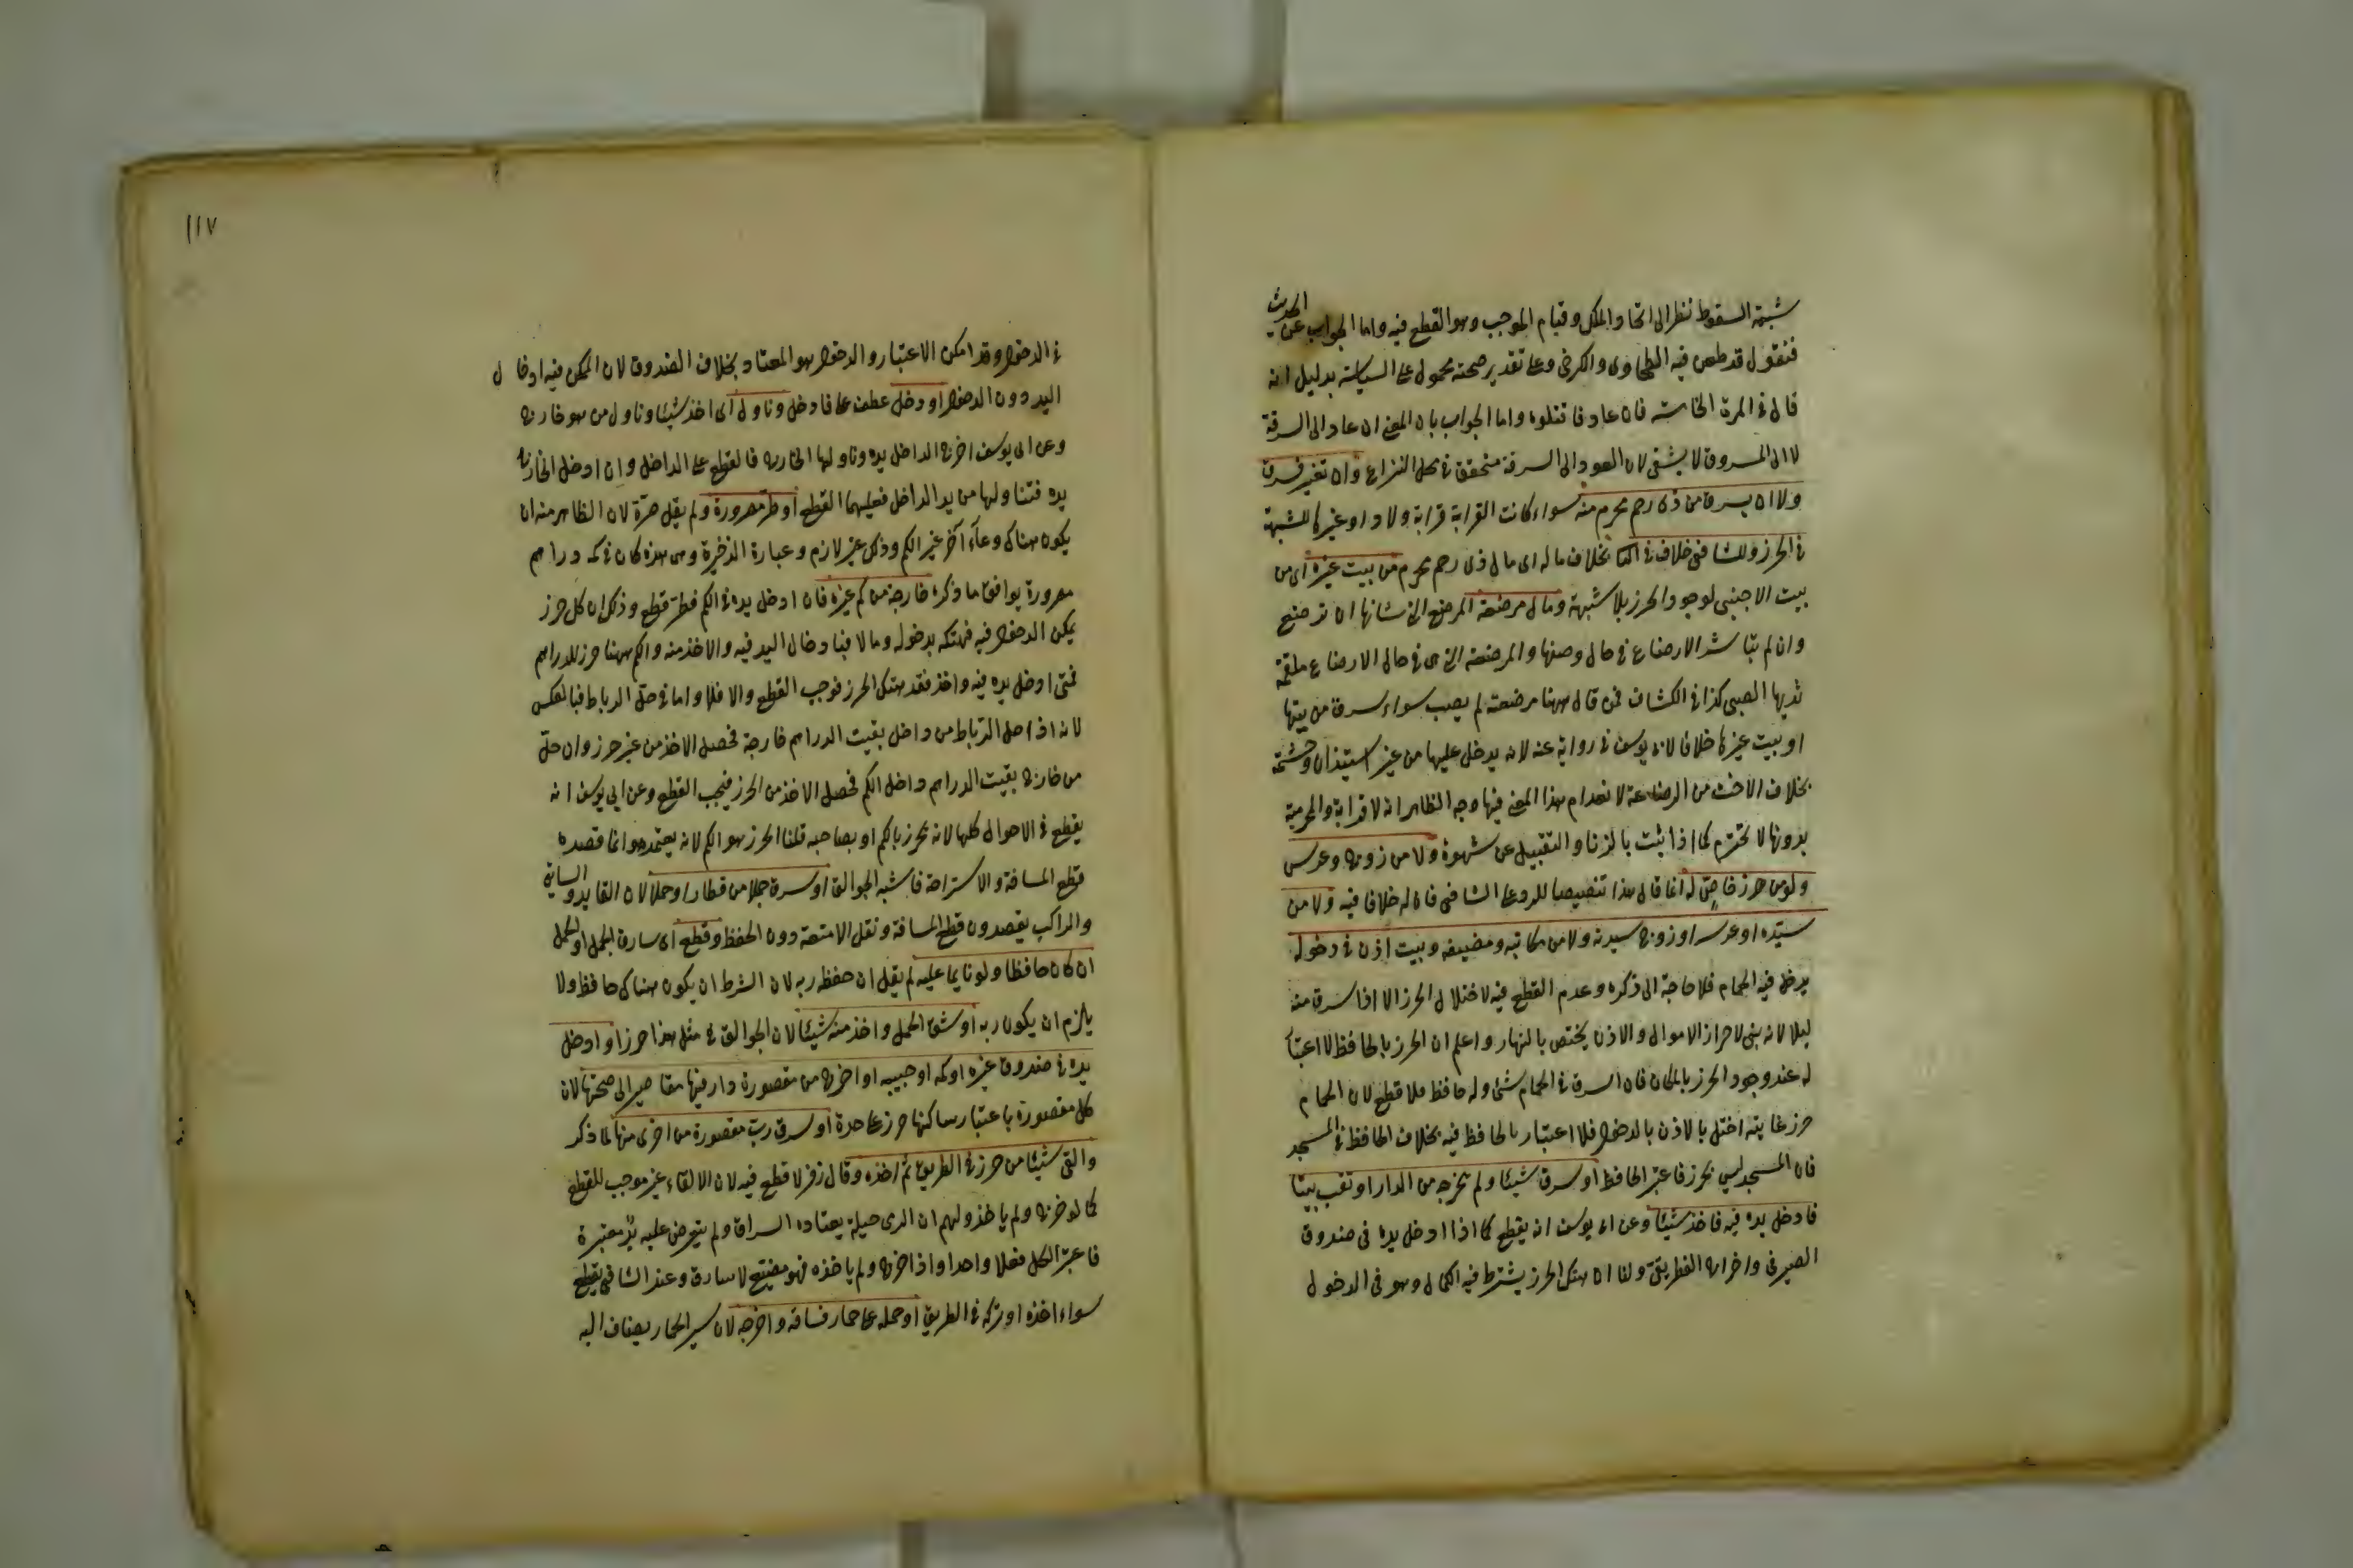 شبهة السقوط نظرا الى اتحاد الملك وقيام الموجب وهو القطع فيه واما الجواب عن الحديث
فنقول قد طعن فيه الطحاوى والكرخى وعلى تقدير صحته محمول على السياسة بدليل انه
قال فى المرة الخامسة فان عاد فاقتلوه واما الجواب بان المعنى ان عاد الى السرقة
لا الى المسروق لا يشفى لان العود الى السرقة متحقق فى محل النزاع وان تغير فسرق
ولا ان يسرق من ذى رحم محرم منه سواء كانت القرابة قرابة ولاد او غيرها للشبهة
فى الحرز وللشافعى خلاف فى بخلاف ماله اى مال ذى رحم محرم من بيت غيره اى من
بيت الاجنبى لوجود الحرز بلا شبهة ومال مرضعة المرضع التى شانها ان ترضع
وان لم تباشر الارضاع فى حال وصفها والمرضعة التى هى فى حال الارضاع ملقمة
ثديها الصبى كذا فى الكشاف فمن قال ههنا مرضعته لم يصب سواء سرق من بيتها
او بيت غيرها خلافا لابى يوسف فى رواية عنه لانه يدخل عليها من غير استيذان وحشمة
بخلاف الاخت من الرضاعة لانعدام هذا المعنى فيها وجه الظاهر انه لا قرابة والمحرمية
بدونها لا تحترم كما اذا ثبت بالزنا والتقبيل عن شهوة ولا من زوج وعرس
ولو من حرز خاص له انما قال هذا تنصيصا للرد على الشافعى فان له خلافا فيه ولا من
سيده او عرسه او زوج سيدته ولا من مكاتبه ومضيفه وبيت اذن فى دخوله
يدخل فيه الحمام فلا حاجة الى ذكره وعدم القطع فيه لاختلال الحرز الا اذا سرق منه
ليلا لانه بنى لاحراز الاموال والاذن يختص بالنهار واعلم ان الحرز بالحافظ لا اعتبار
له عند وجود الحرز بالمكان فان السرق فى الحمام شئ وله حافظ فلا قطع لان الحمام
حرز غايته اختل بالاذن بالدخول فلا اعتبار بالحافظ فيه بخلاف الحافظ فى المسجد
فان المسجد ليس بحرز فاعتبر الحافظ او سرق شيئا ولم يخرجه من الدار او نقب بيتا
فادخل يده فيه فاخذ شيئا وعن ابى يوسف انه يقطع كما اذا ادخل يده فى صندوق
الصيرفى واخراج الغطريفى ولنا ان هتك الحرز يشترط فيه الكمال وهو فى الدخول
فى الدخول وقد امكن الاعتبار والدخول هو المعتاد بخلاف الصندوق لان الممكن فيه ادخال
اليد دون الدخول او دخل عطف على فادخل وناول اى اخذ شيئا وناول من هو خارج
وعن ابى يوسف اخرج الداخل يده وناولها الخارج فالقطع على الداخل وان ادخل الخارج
يده فتناولها من يد الداخل فعليهما القطع او طر صرورة ولم يقل صرة لان الظاهر منه ان
يكون هناك وعاء آخر غير الكم وذلك غير لازم وعبارة الذخيرة وهى هذه كان فى كمه دراهم
مصرورة يوافق ما ذكره خارجة من كم غيره فان ادخل يده فى الكم فطر قطع وذلك ان كل حرز
يمكن الدخول فيه فهتكه بدخوله وما لا فبادخال اليد فيه والاخذ منه والكم ههنا حرز للدراهم
فمتى ادخل يده فيه واخذ فقد هتك الحرز فوجب القطع والا فلا واما فى حل الرباط فبالعكس
لانه اذا حل الرباط من داخل بقيت الدراهم خارجة فحصل الاخذ من غير حرز وان حل
من خارج بقيت الدراهم داخل الكم فحصل الاخذ من الحرز فيجب القطع وعن ابى يوسف انه
يقطع فى الاحوال كلها لانه محرز بالكم او بصاحبه قلنا الحرز هو الكم لانه يعتمده وانما قصده
قطع المسافة والاستراحة فاشبه الجوالق او سرق جملا من قطار او حملا لان القايد والسائق
والراكب يقصدون قطع المسافة ونقل الامتعة دون الحفظ وقطع اى سارق الجمل او الحمل
ان كان حافظا ولو نايما عليه لم يقل ان حفظه ربه لان الشرط ان يكون هناك حافظ ولا
يلزم ان يكون ربه او شق الحمل واخذ منه شيئا لان الجوالق فى مثل هذا حرز او ادخل
يده فى صندوق غيره او كمه او جيبه او اخرج من مقصورة دار فيها مقاصير الى صحنها لان
كل مقصورة باعتبار ساكنها حرز على حدة او سرق رب مقصورة من اخرى منها لما ذكر
والقى شيئا من حرز فى الطريق ثم اخذه وقال زفر لا قطع فيه لان الالقاء غير موجب للقطع
كما لو خرج ولم ياخذ ولهم ان الرمى حيلة يعتاده السراق ولم يعترض عليه يد معتبرة
فاعتبر الكل فعلا واحدا واذا خرج ولم ياخذه فهو مضيع لا سارق وعند الشافعى يقطع
سواء اخذه او تركه فى الطريق او حمله على حمار فساقه واخرجه لان سير الحمار يضاف اليه
١١٧